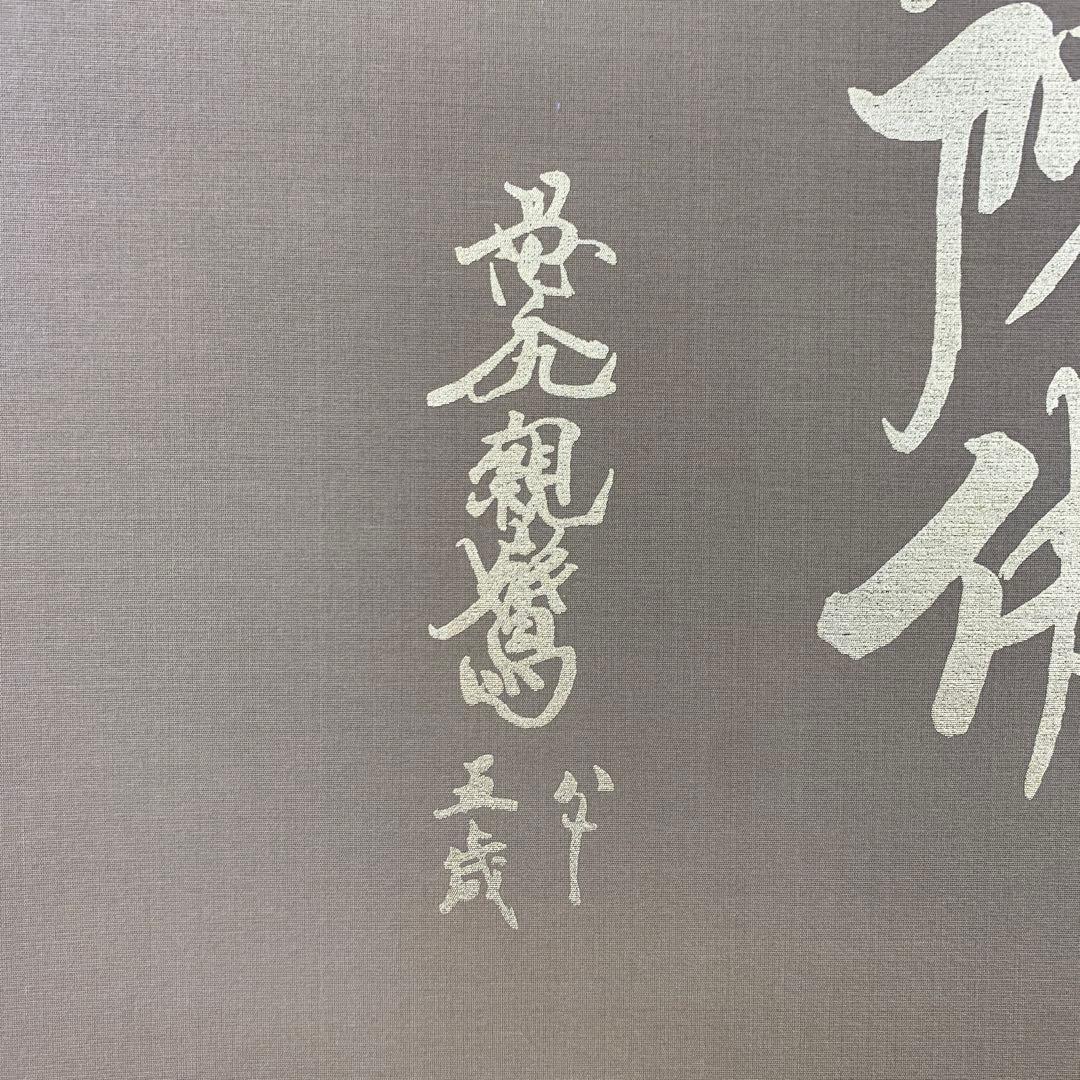 愚禿親鸞
八十
五歳